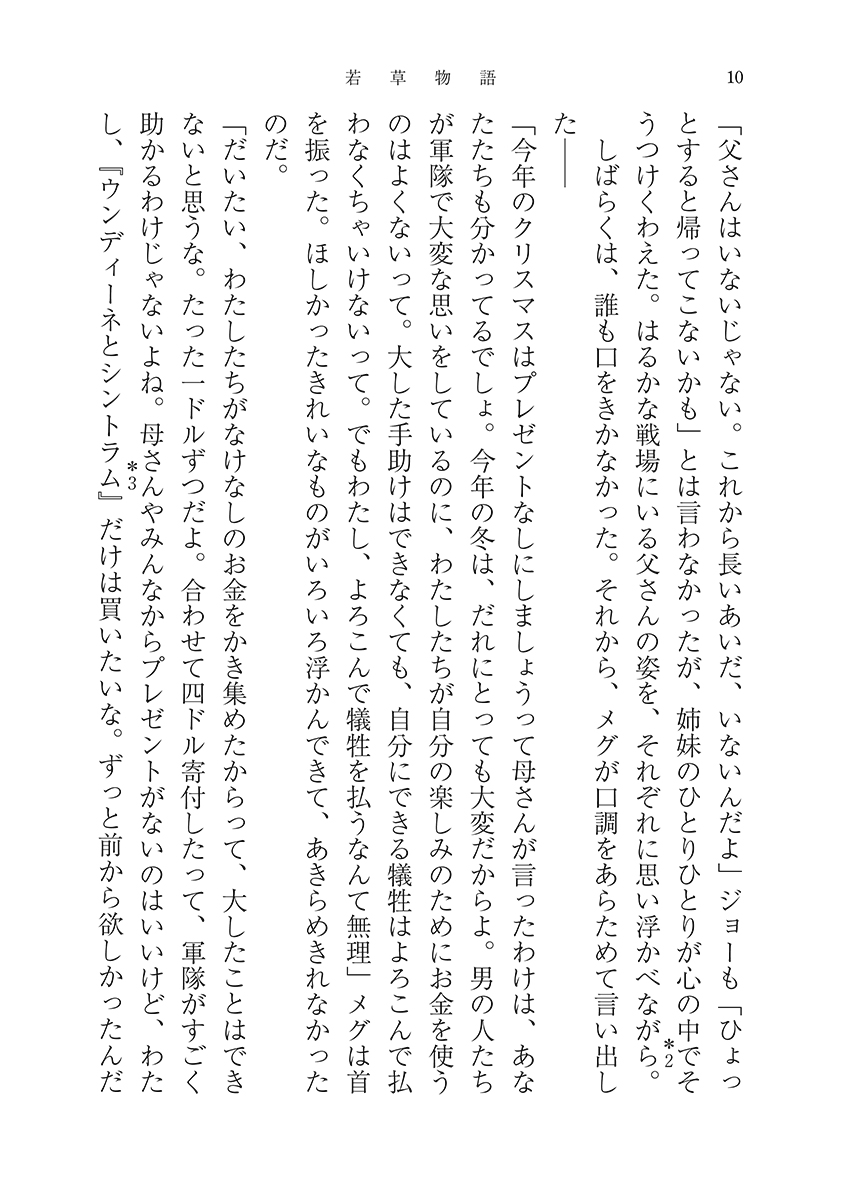 10
若草物語
「父さんはいないじゃない。これから長いあいだ、いないんだよ」ジョーも「ひょっ
とすると帰ってこないかも」とは言わなかったが、姉妹のひとりひとりが心の中でそ
うつけくわえた。はるかな戦場にいる父さんの姿を、それぞれに思い浮かべながら。*2
　しばらくは、誰も口をきかなかった。それから、メグが口調をあらためて言い出し
た――
「今年のクリスマスはプレゼントなしにしましょうって母さんが言ったわけは、あな
たたちも分かってるでしょ。今年の冬は、だれにとっても大変だからよ。男の人たち
が軍隊で大変な思いをしているのに、わたしたちが自分の楽しみのためにお金を使う
のはよくないって。大した手助けはできなくても、自分にできる犠牲はよろこんで払
わなくちゃいけないって。でもわたし、よろこんで犠牲を払うなんて無理」メグは首
を振った。ほしかったきれいなものがいろいろ浮かんできて、あきらめきれなかった
のだ。
「だいたい、わたしたちがなけなしのお金をかき集めたからって、大したことはでき
ないと思うな。たった一ドルずつだよ。合わせて四ドル寄付したって、軍隊がすごく
助かるわけじゃないよね。母さんやみんなからプレゼントがないのはいいけど、わた
し、『ウンディーネとシントラム』*3だけは買いたいな。ずっと前から欲しかったんだ